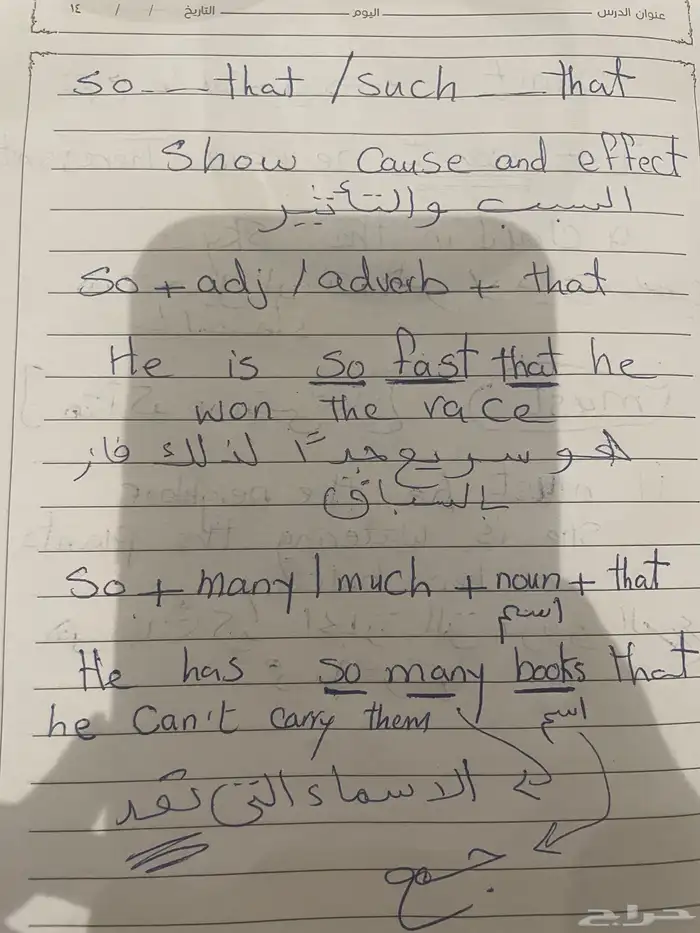 عنوان الدرس اليوم التاريخ / / ١٤
So ___ that / such ___ that
Show cause and effect
السبب والتأثير
So + adj / adverb + that
He is so fast that he
won the race
هو سريع جداً لذلك فاز
بالسباق
So + many / much + noun + that
اسم
He has so many books that
he can't carry them
اسم
الاسماء التي تعد
جمع
حراج